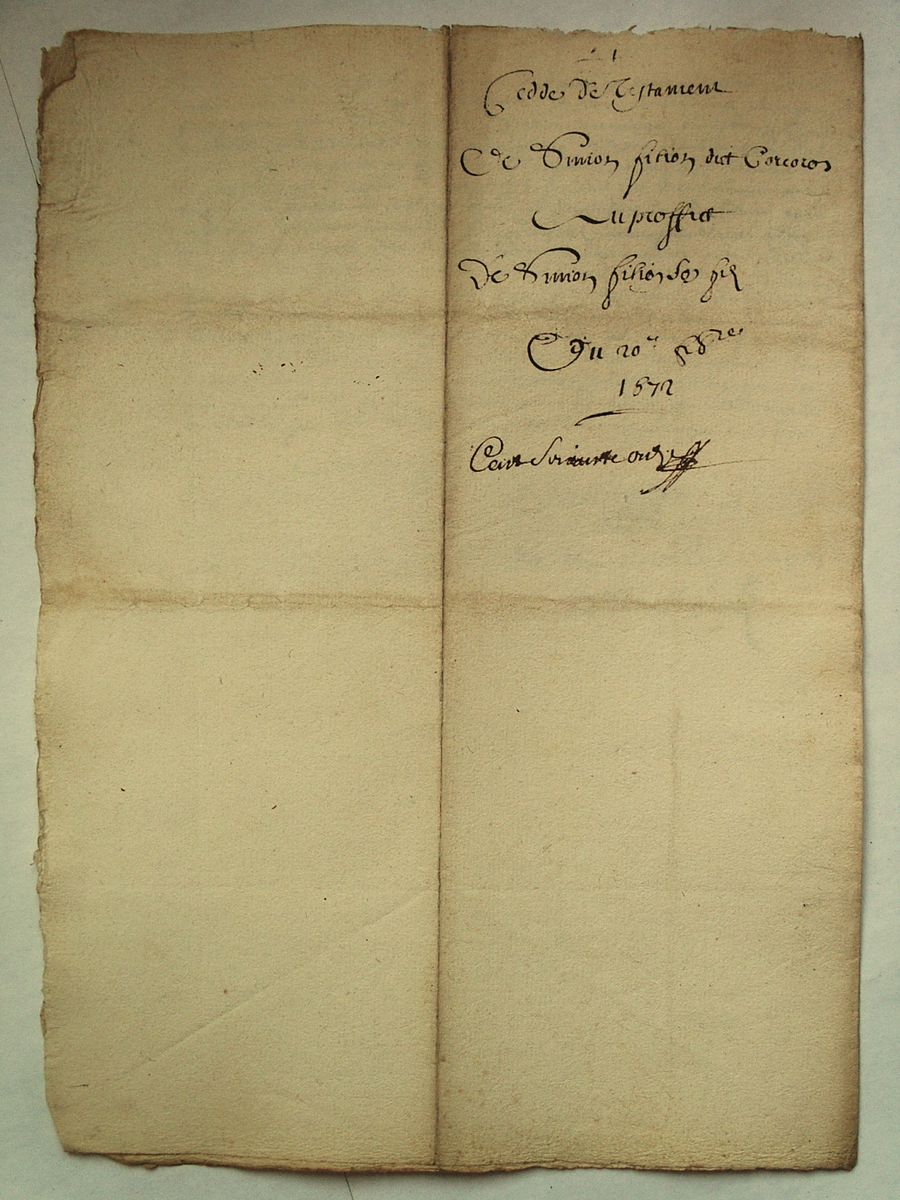 Cedde De Testament
De Simon filion dict Corcoron
Au proffict
De Simon filion So filz
Du 20e
1572
Cent Soixante